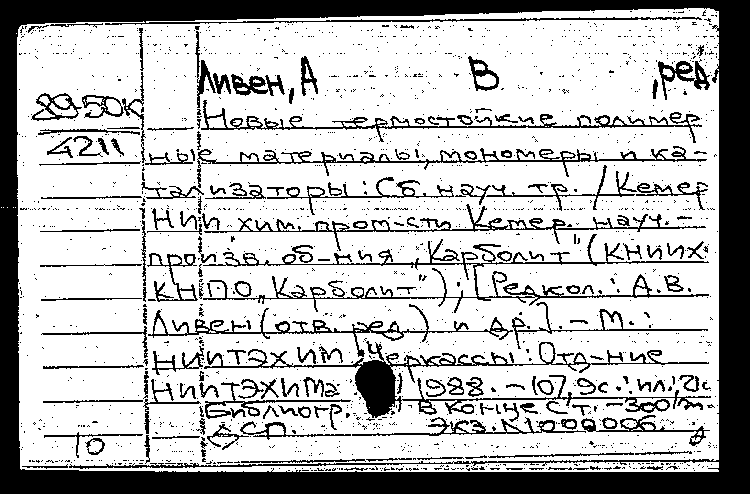 Ливен, А В , ред.
89-50К
4211
Новые термостойкие полимер
ные материалы, мономеры и ка-
тализаторы: Сб. науч. тр. / Кемер
НИИ хим. пром-сти Кемер. науч.-
произв. об-ния „Карболит" (КНИИХ
КНПО „Карболит"); [Редкол.: А.В.
Ливен (отв. ред.) и др.]. - М.:
НИИТЭХИМ Черкассы: Отд-ние
НИИТЭХИМа 1988. - 107, 9с.: ил.; 21с
Библиогр. в конце ст. - 300
ДСП. Экз. N
10